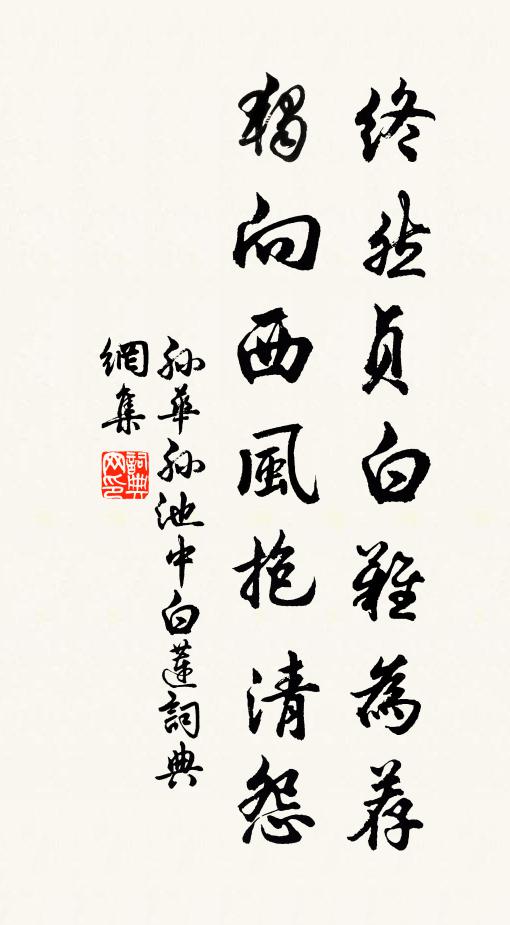 終然貞白難為荐
獨向西風抱清怨
孫華孫池中白蓮詞典
網集
詞典
网印